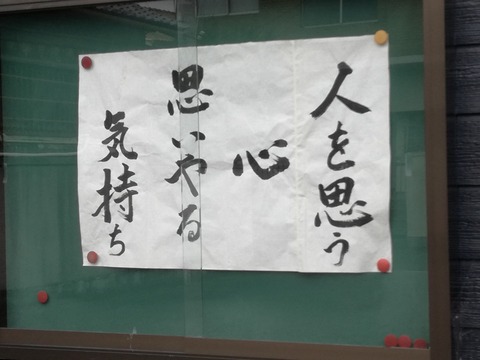 人を思う
心
思いやる
気持ち